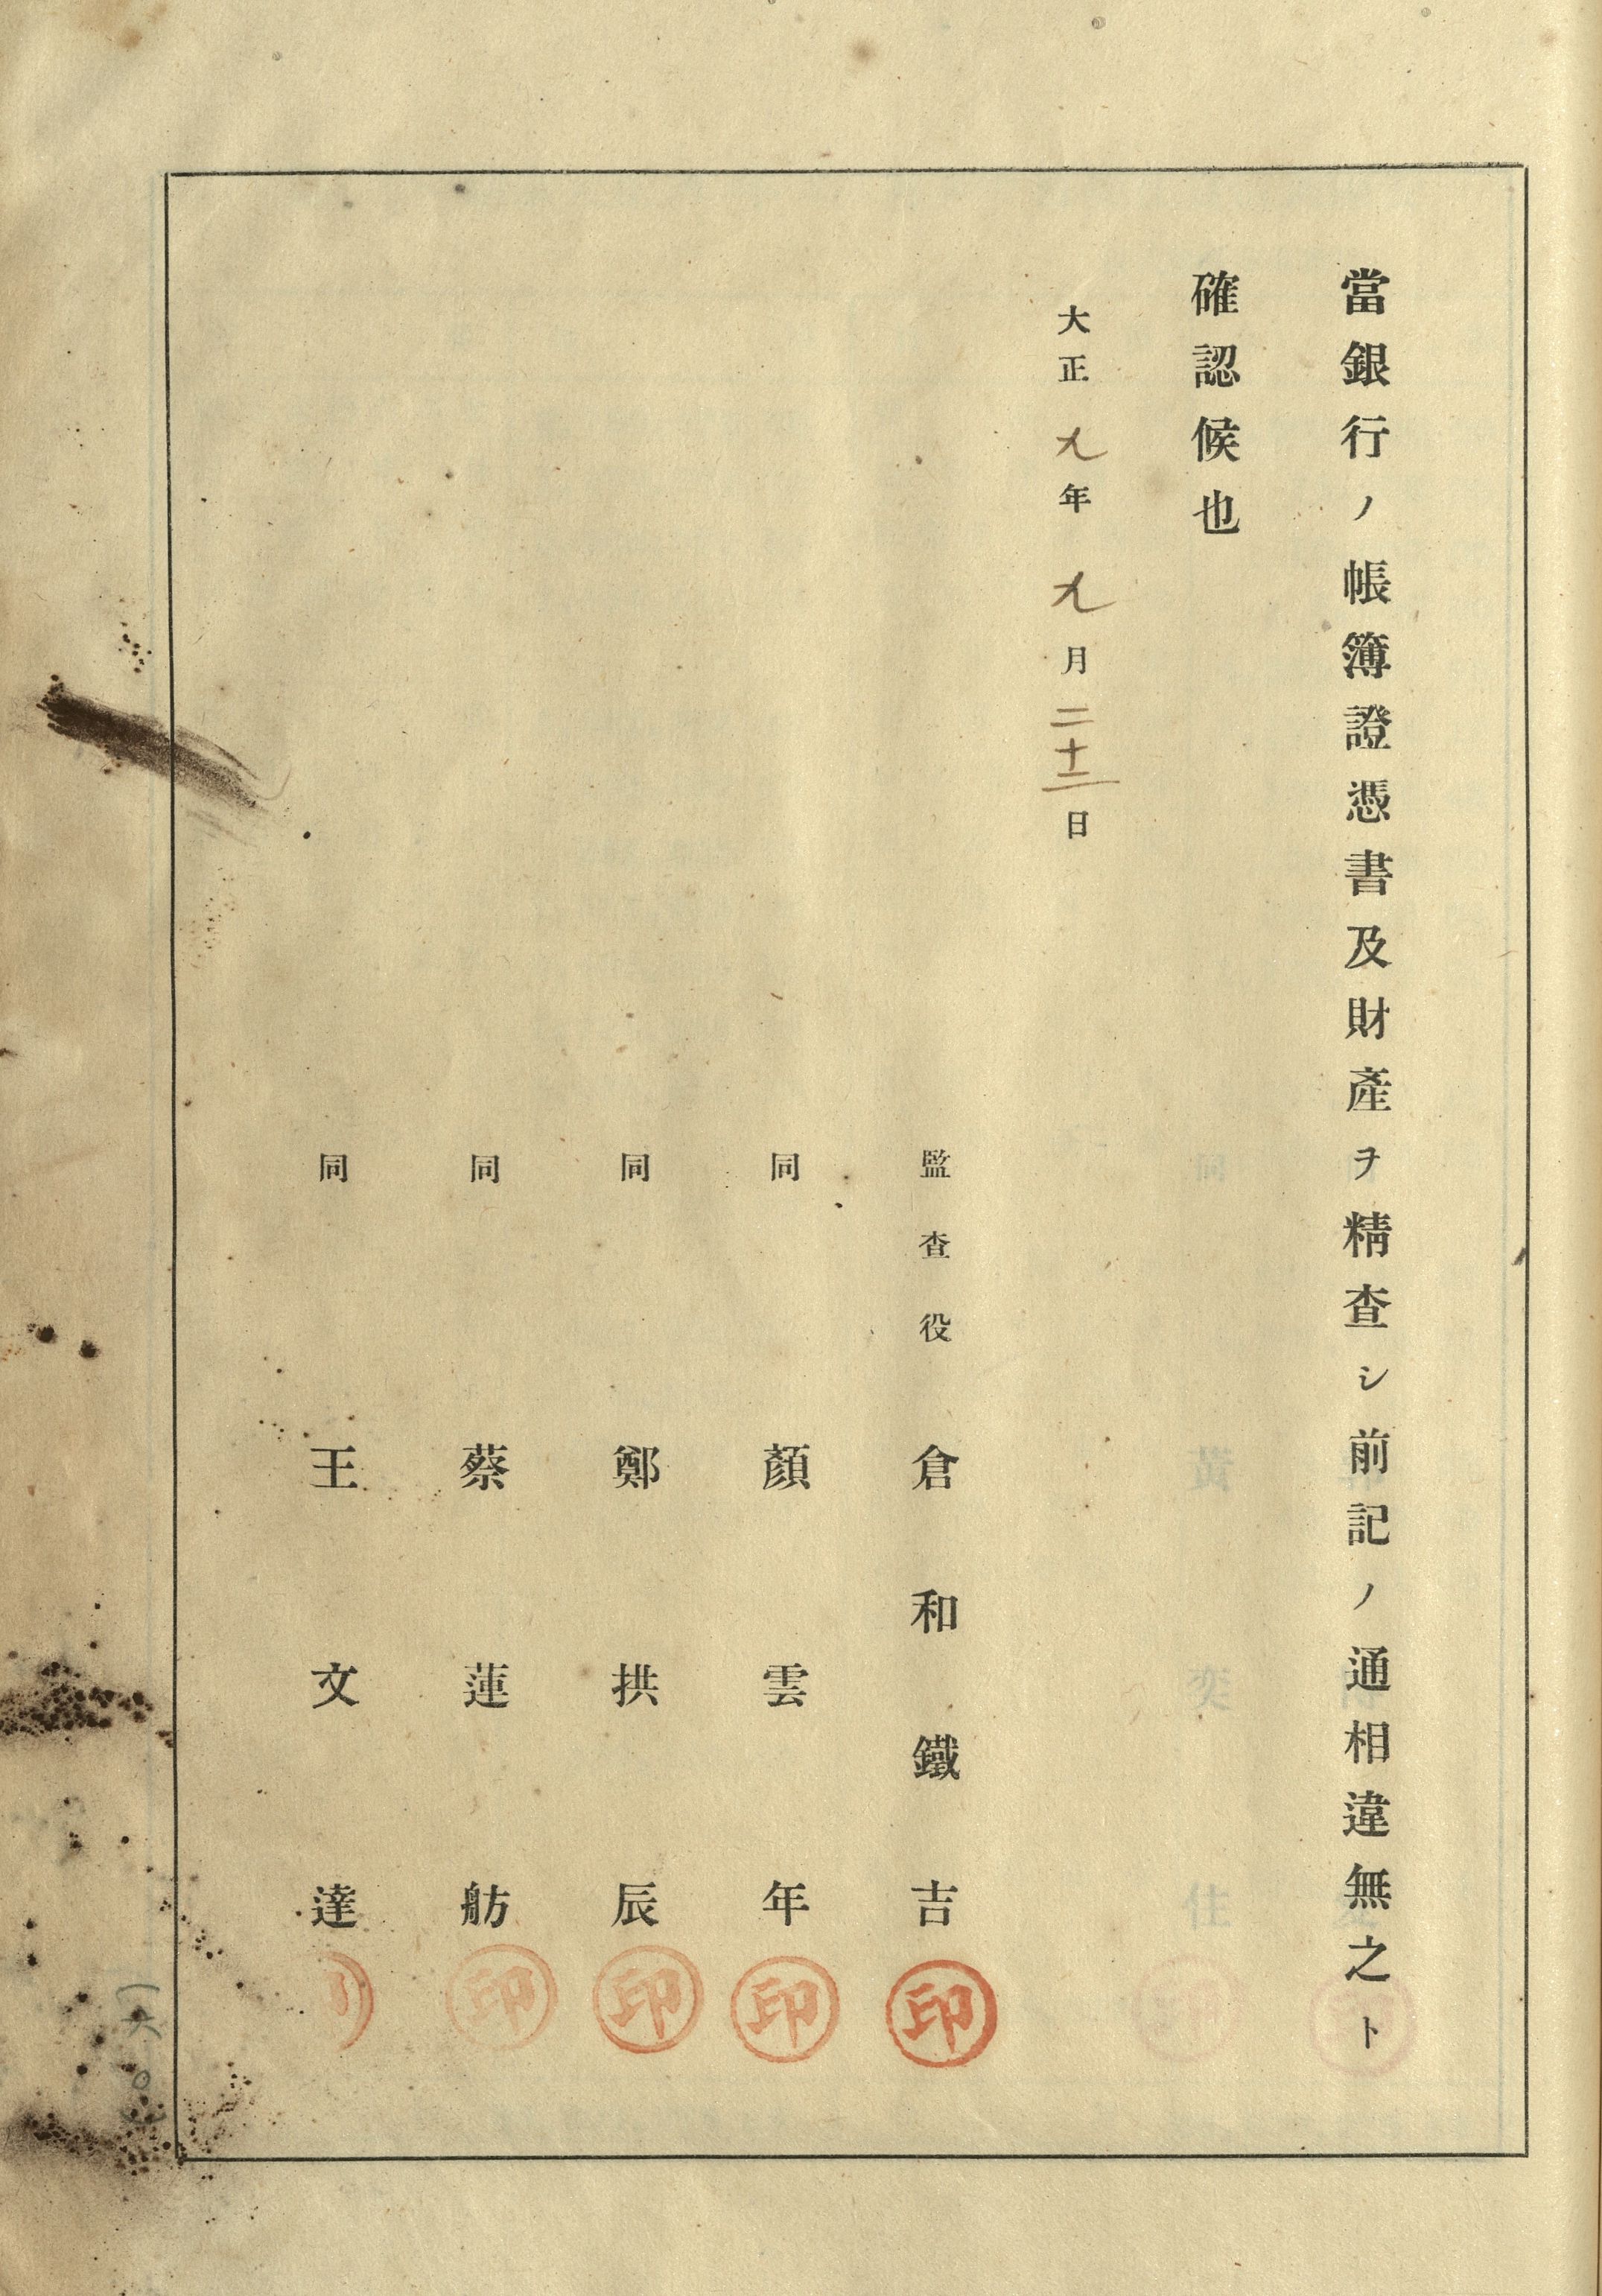 當銀行ノ帳簿證憑書及財產ヲ精查シ前記ノ通相違無之ト
確認候也
大正九年九月二十二日
監查役 倉和鐵吉 印
同 顏雲年 印
同 鄭拱辰 印
同 蔡蓮舫 印
同 王文達